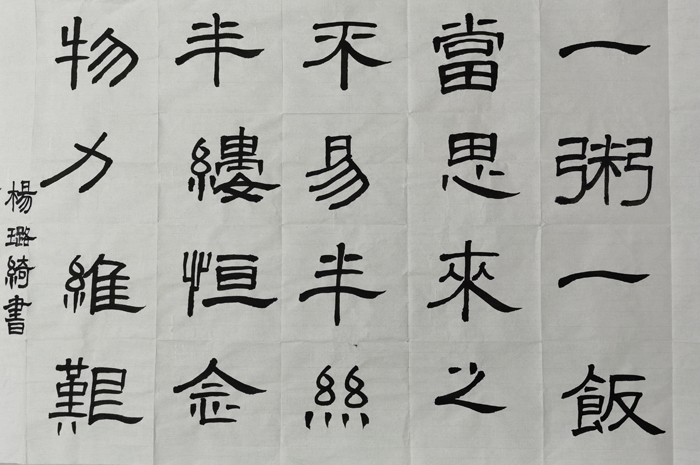 一粥一飯
當思來之
不易半絲
半縷恒念
物力維艱
楊璐綺書